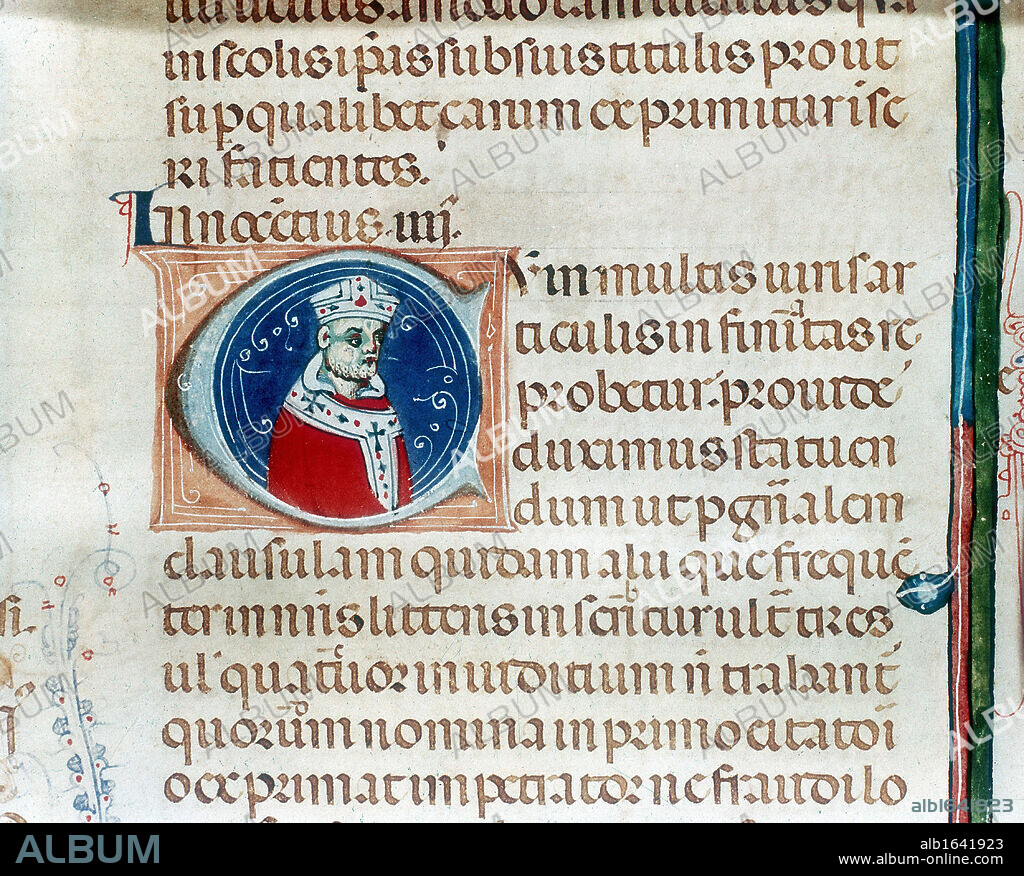 in scolis ip̄as sub suis titulis prout
sup qualibet earum exprimitur ise
ri facientes.
Innocētius iiij.
Cum in multis iuris ar
ticulis infinitas re
probetur. prouide
duximus statuen
dum ut p gn̄alem
clausulam quidam alii que frequē
ter in nr̄is litteris inscribitur ult̄ tres
ul' quatuor in iudicium n̄ trahant̄
quorūdam nomina in primo citatōi
o exprimat impetrator ne fraudi lo
ALBUM
alb1641923
www.album-online.com